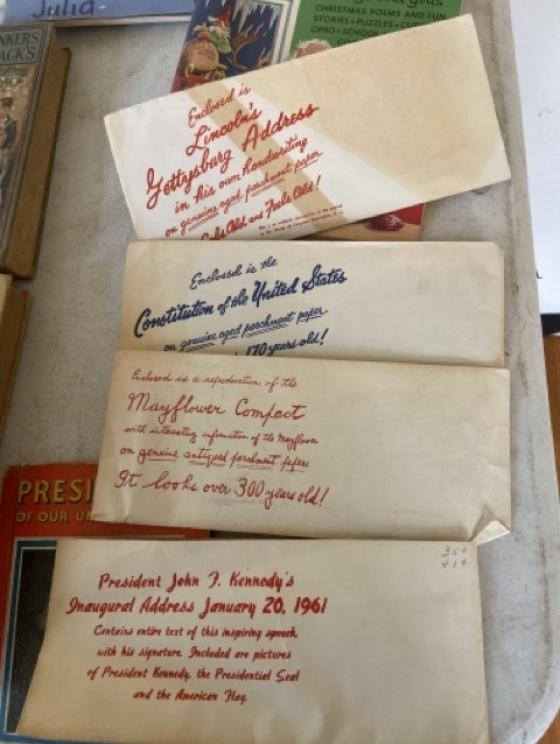 Julia
CHRISTMAS POEMS AND FUN
STORIES • PUZZLES •
OHIO • SCHOOL
Enclosed is
Lincoln's
Gettysburg Address
in his own handwriting
on genuine aged parchment paper
Looks Old and Feels Old!
Enclosed is the
Constitution of the United States
on genuine aged parchment paper
170 years old!
Enclosed is a reproduction of the
Mayflower Compact
with interesting information of the Mayflower
on genuine antiqued parchment paper
It looks over 300 years old!
PRESI
OF OUR UN
35¢
+1¢
President John F. Kennedy's
Inaugural Address January 20, 1961
Contains entire text of this inspiring speech
with his signature. Included are pictures
of President Kennedy, the Presidential Seal
and the American Flag.